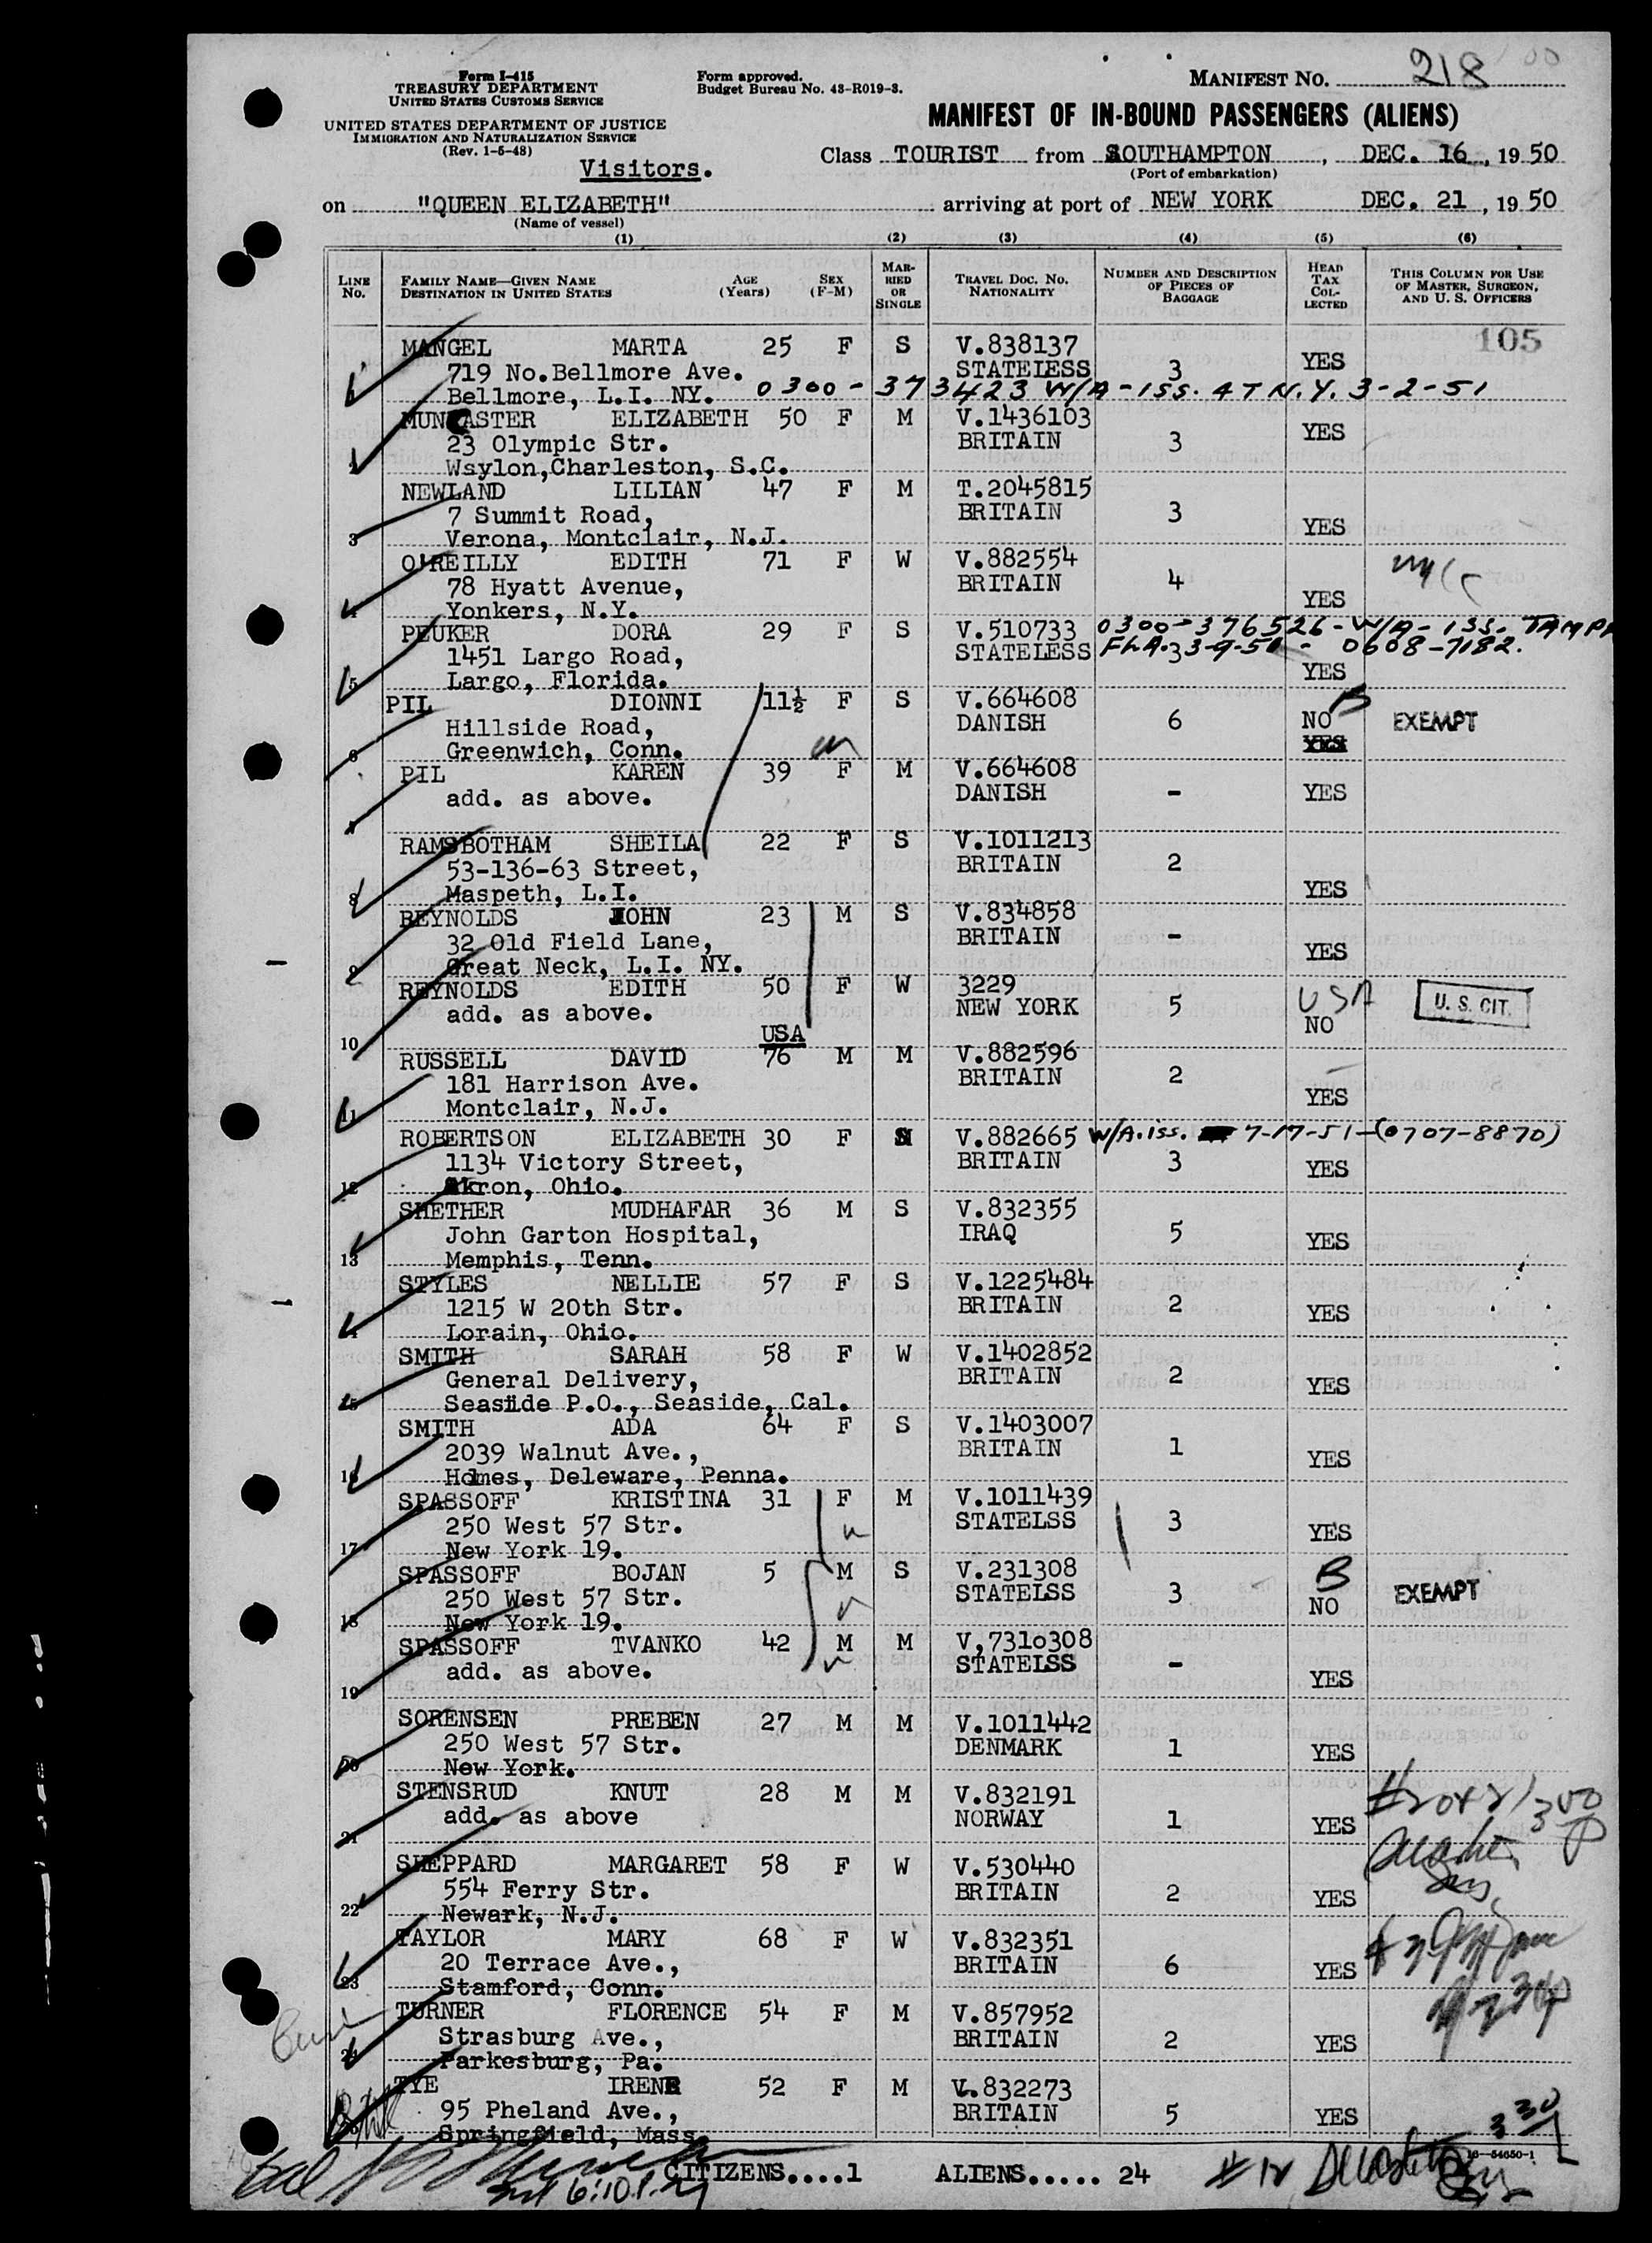 Form I-415
TREASURY DEPARTMENT
UNITED STATES CUSTOMS SERVICE
UNITED STATES DEPARTMENT OF JUSTICE
IMMIGRATION AND NATURALIZATION SERVICE
(Rev. 1-5-48)
Form approved.
Budget Bureau No. 43-R019-3.
MANIFEST NO. 218
MANIFEST OF IN-BOUND PASSENGERS (ALIENS)
Visitors.
Class TOURIST from SOUTHAMPTON, DEC. 16, 19 50
(Port of embarkation)
on "QUEEN ELIZABETH" arriving at port of NEW YORK DEC. 21, 19 50
(Name of vessel)
(1) (2) (3) (4) (5) (6)
LINE No. FAMILY NAME—GIVEN NAME DESTINATION IN UNITED STATES AGE (Years) SEX (F-M) MARRIED OR SINGLE TRAVEL DOC. NO. NATIONALITY NUMBER AND DESCRIPTION OF PIECES OF BAGGAGE HEAD TAX COLLECTED THIS COLUMN FOR USE OF MASTER, SURGEON, AND U. S. OFFICERS
105
MANGEL MARTA 25 F S V.838137
719 No.Bellmore Ave. STATEIESS 3 YES
Bellmore, L.I. NY. 0300-373423 W/A-ISS. AT N.Y. 3-2-51
MUNCASTER ELIZABETH 50 F M V.1436103
23 Olympic Str. BRITAIN 3 YES
Wsylon,Charleston, S.C.
NEWLAND LILIAN 47 F M T.2045815
7 Summit Road, BRITAIN 3
3 Verona, Montclair, N.J. YES
O'REILLY EDITH 71 F W V.882554
78 Hyatt Avenue, BRITAIN 4
Yonkers, N.Y. YES
PEUKER DORA 29 F S V.510733 0300-376526-W/A-ISS. TAMPA
1451 Largo Road, STATEIESS FLA. 3 3-9-51 - 0608-7182.
5 Largo, Florida. YES
PIL DIONNI 11½ F S V.664608
Hillside Road, DANISH 6 NO EXEMPT
6 Greenwich, Conn. YES
PIL KAREN 39 F M V.664608
add. as above. DANISH - YES
RAMSBOTHAM SHEILA 22 F S V.1011213
53-136-63 Street, BRITAIN 2
8 Maspeth, L.I. YES
REYNOLDS JOHN 23 M S V.834858
32 Old Field Lane, BRITAIN -
9 Great Neck, L.I. NY. YES
REYNOLDS EDITH 50 F W 3229 USA U. S. CIT.
add. as above. NEW YORK 5 NO
10 USA
RUSSELL DAVID 76 M M V.882596
181 Harrison Ave. BRITAIN 2
11 Montclair, N.J. YES
ROBERTSON ELIZABETH 30 F V.882665 W/A.iss. 7-17-51-(0707-8870)
1134 Victory Street, BRITAIN 3 YES
12 Akron, Ohio.
SHETHER MUDHAFAR 36 M S V.832355
John Garton Hospital, IRAQ 5 YES
13 Memphis, Tenn.
STYLES NELLIE 57 F S V.1225484
1215 W 20th Str. BRITAIN 2 YES
Lorain, Ohio.
SMITH SARAH 58 F W V.1402852
General Delivery, BRITAIN 2 YES
15 Seaside P.O., Seaside, Cal.
SMITH ADA 64 F S V.1403007
2039 Walnut Ave., BRITAIN 1 YES
16 Holmes, Deleware, Penna.
SPASSOFF KRISTINA 31 F M V.1011439
250 West 57 Str. STATELSS 3 YES
17 New York 19.
SPASSOFF BOJAN 5 M S V.231308 B
250 West 57 Str. STATELSS 3 NO EXEMPT
18 New York 19.
SPASSOFF TVANKO 42 M M V,7310308
add. as above. STATELSS - YES
19
SORENSEN PREBEN 27 M M V.1011442
250 West 57 Str. DENMARK 1 YES
20 New York.
STENSRUD KNUT 28 M M V.832191
add. as above NORWAY 1 YES
21
SHEPPARD MARGARET 58 F W V.530440
554 Ferry Str. BRITAIN 2 YES
22 Newark, N.J.
TAYLOR MARY 68 F W V.832351
20 Terrace Ave., BRITAIN 6 YES
23 Stamford, Conn.
TURNER FLORENCE 54 F M V.857952
Strasburg Ave., BRITAIN 2 YES
24 Parkesburg, Pa.
TYE IRENE 52 F M V.832273
95 Pheland Ave., BRITAIN 5 YES
Springfield, Mass. 330
16—54650-1
CITIZENS....1 ALIENS..... 24